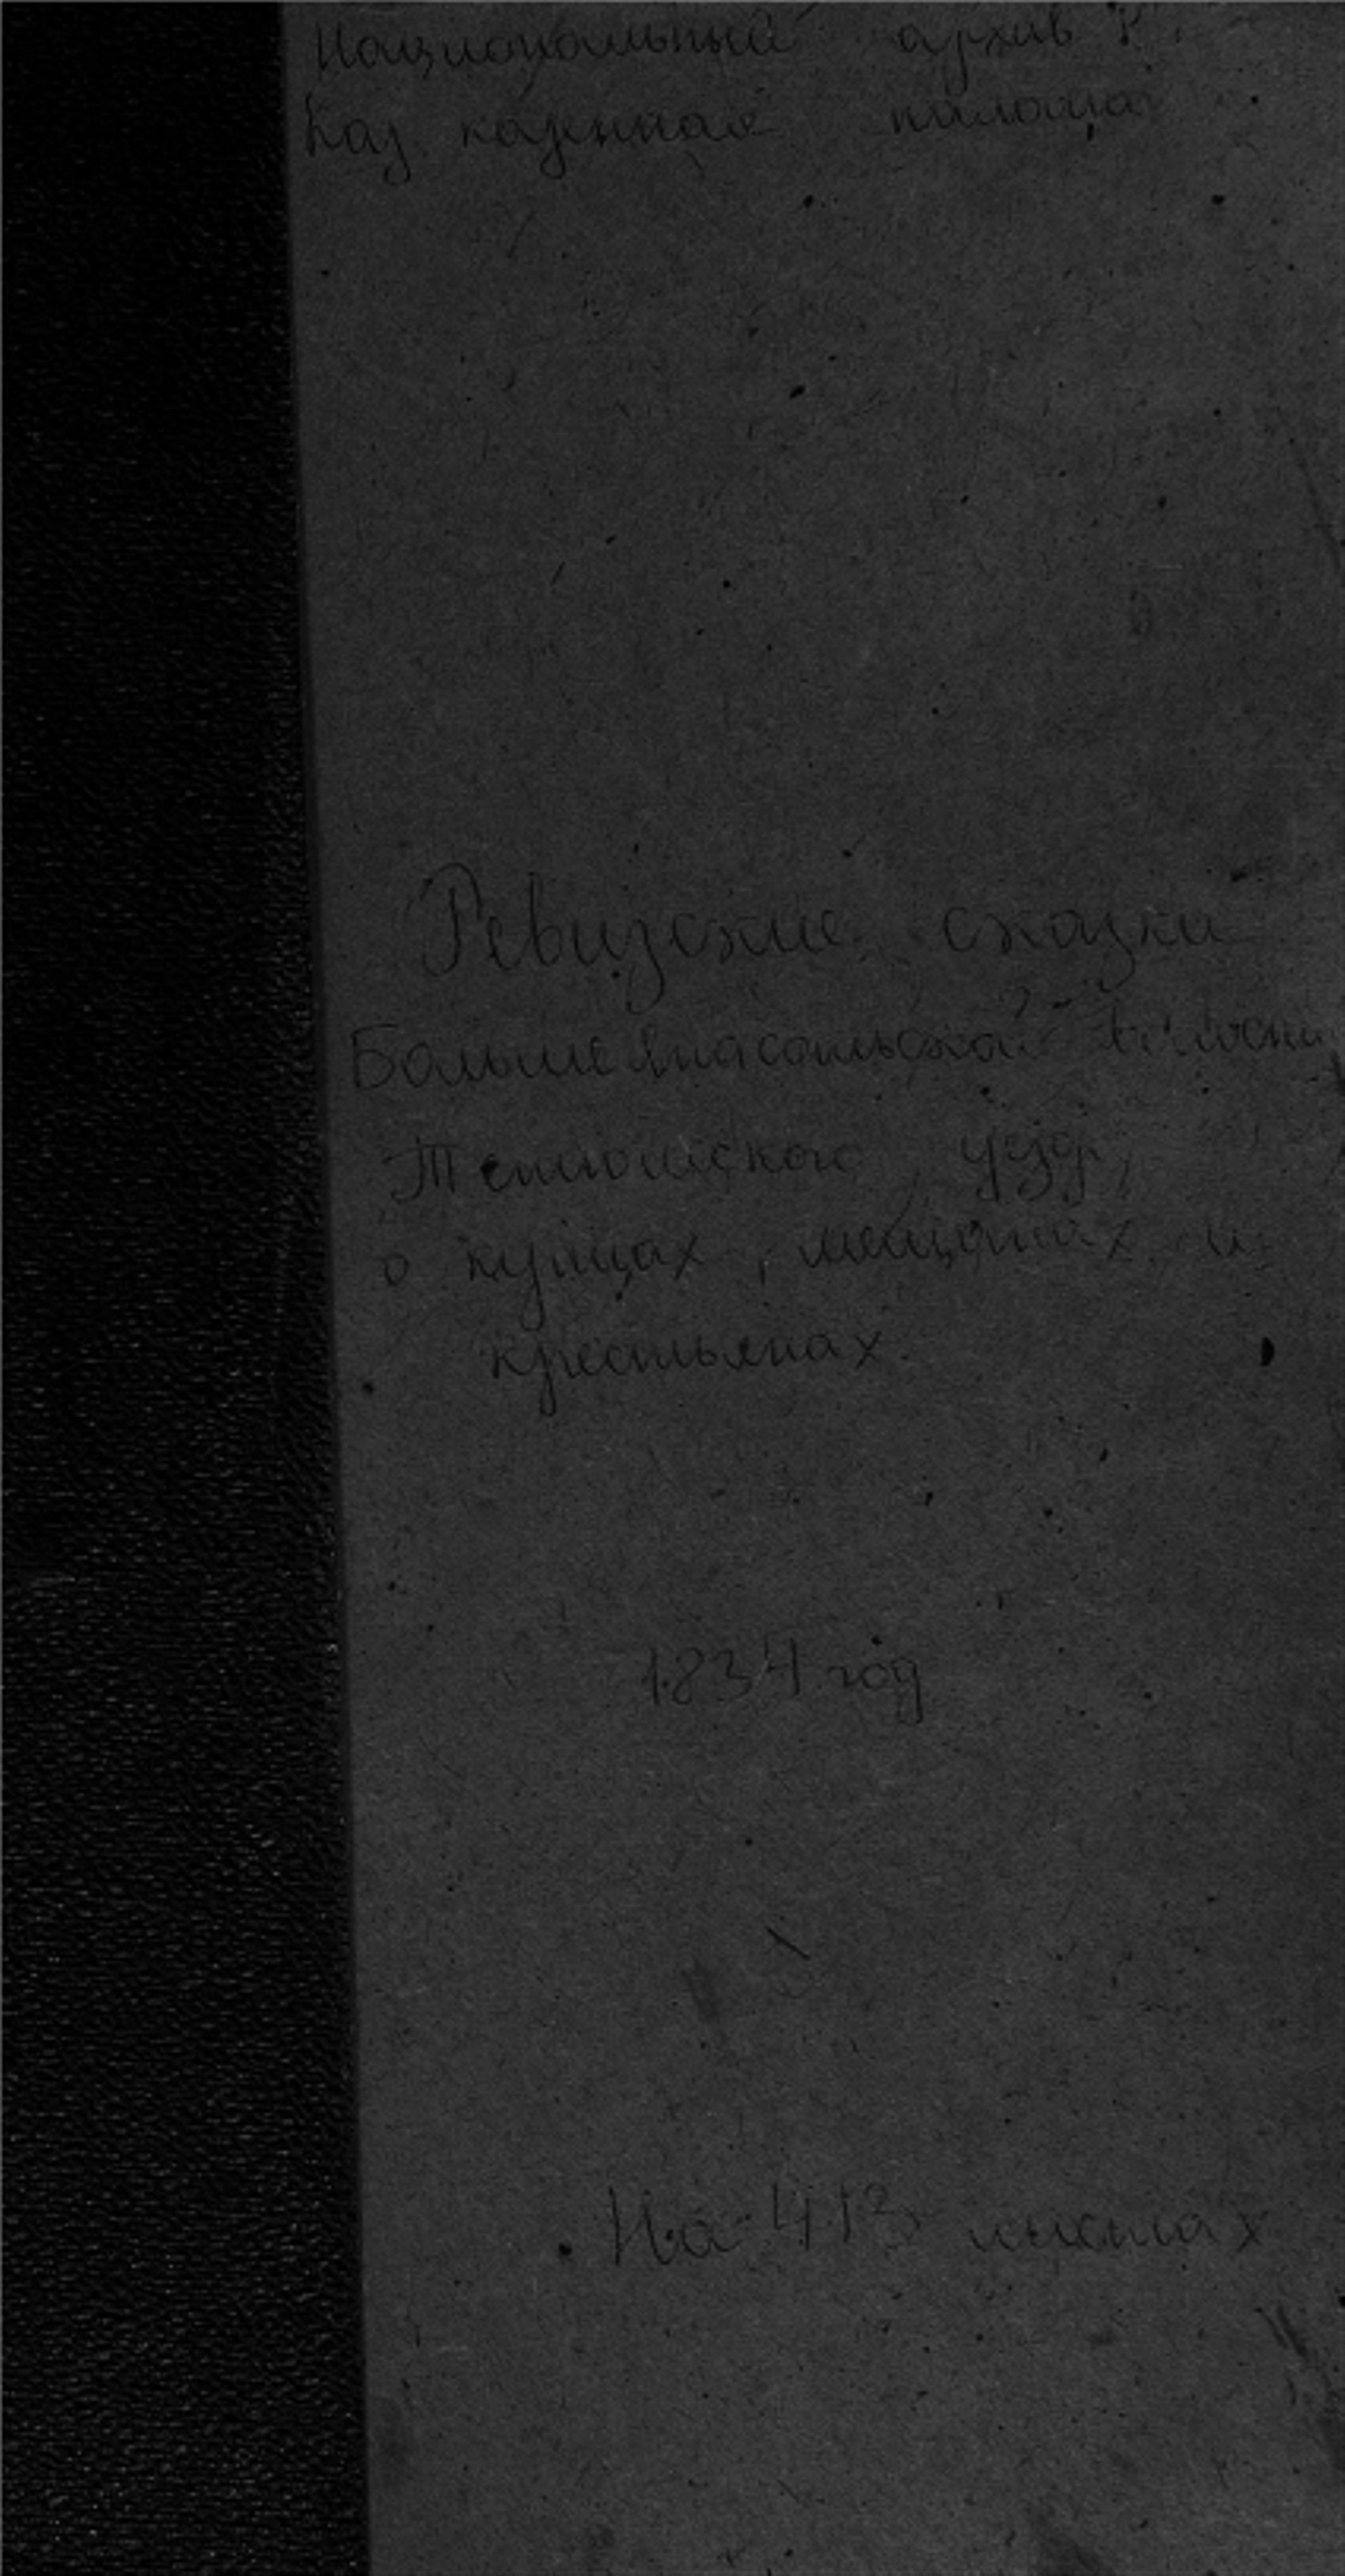 Национальный архив Р
Каз казенная палата
Ревизские сказки
Большеянасальской волости
Тетюшского уезд
о купцах, мещанах и
крестьянах.
1834 год
На 413 листах